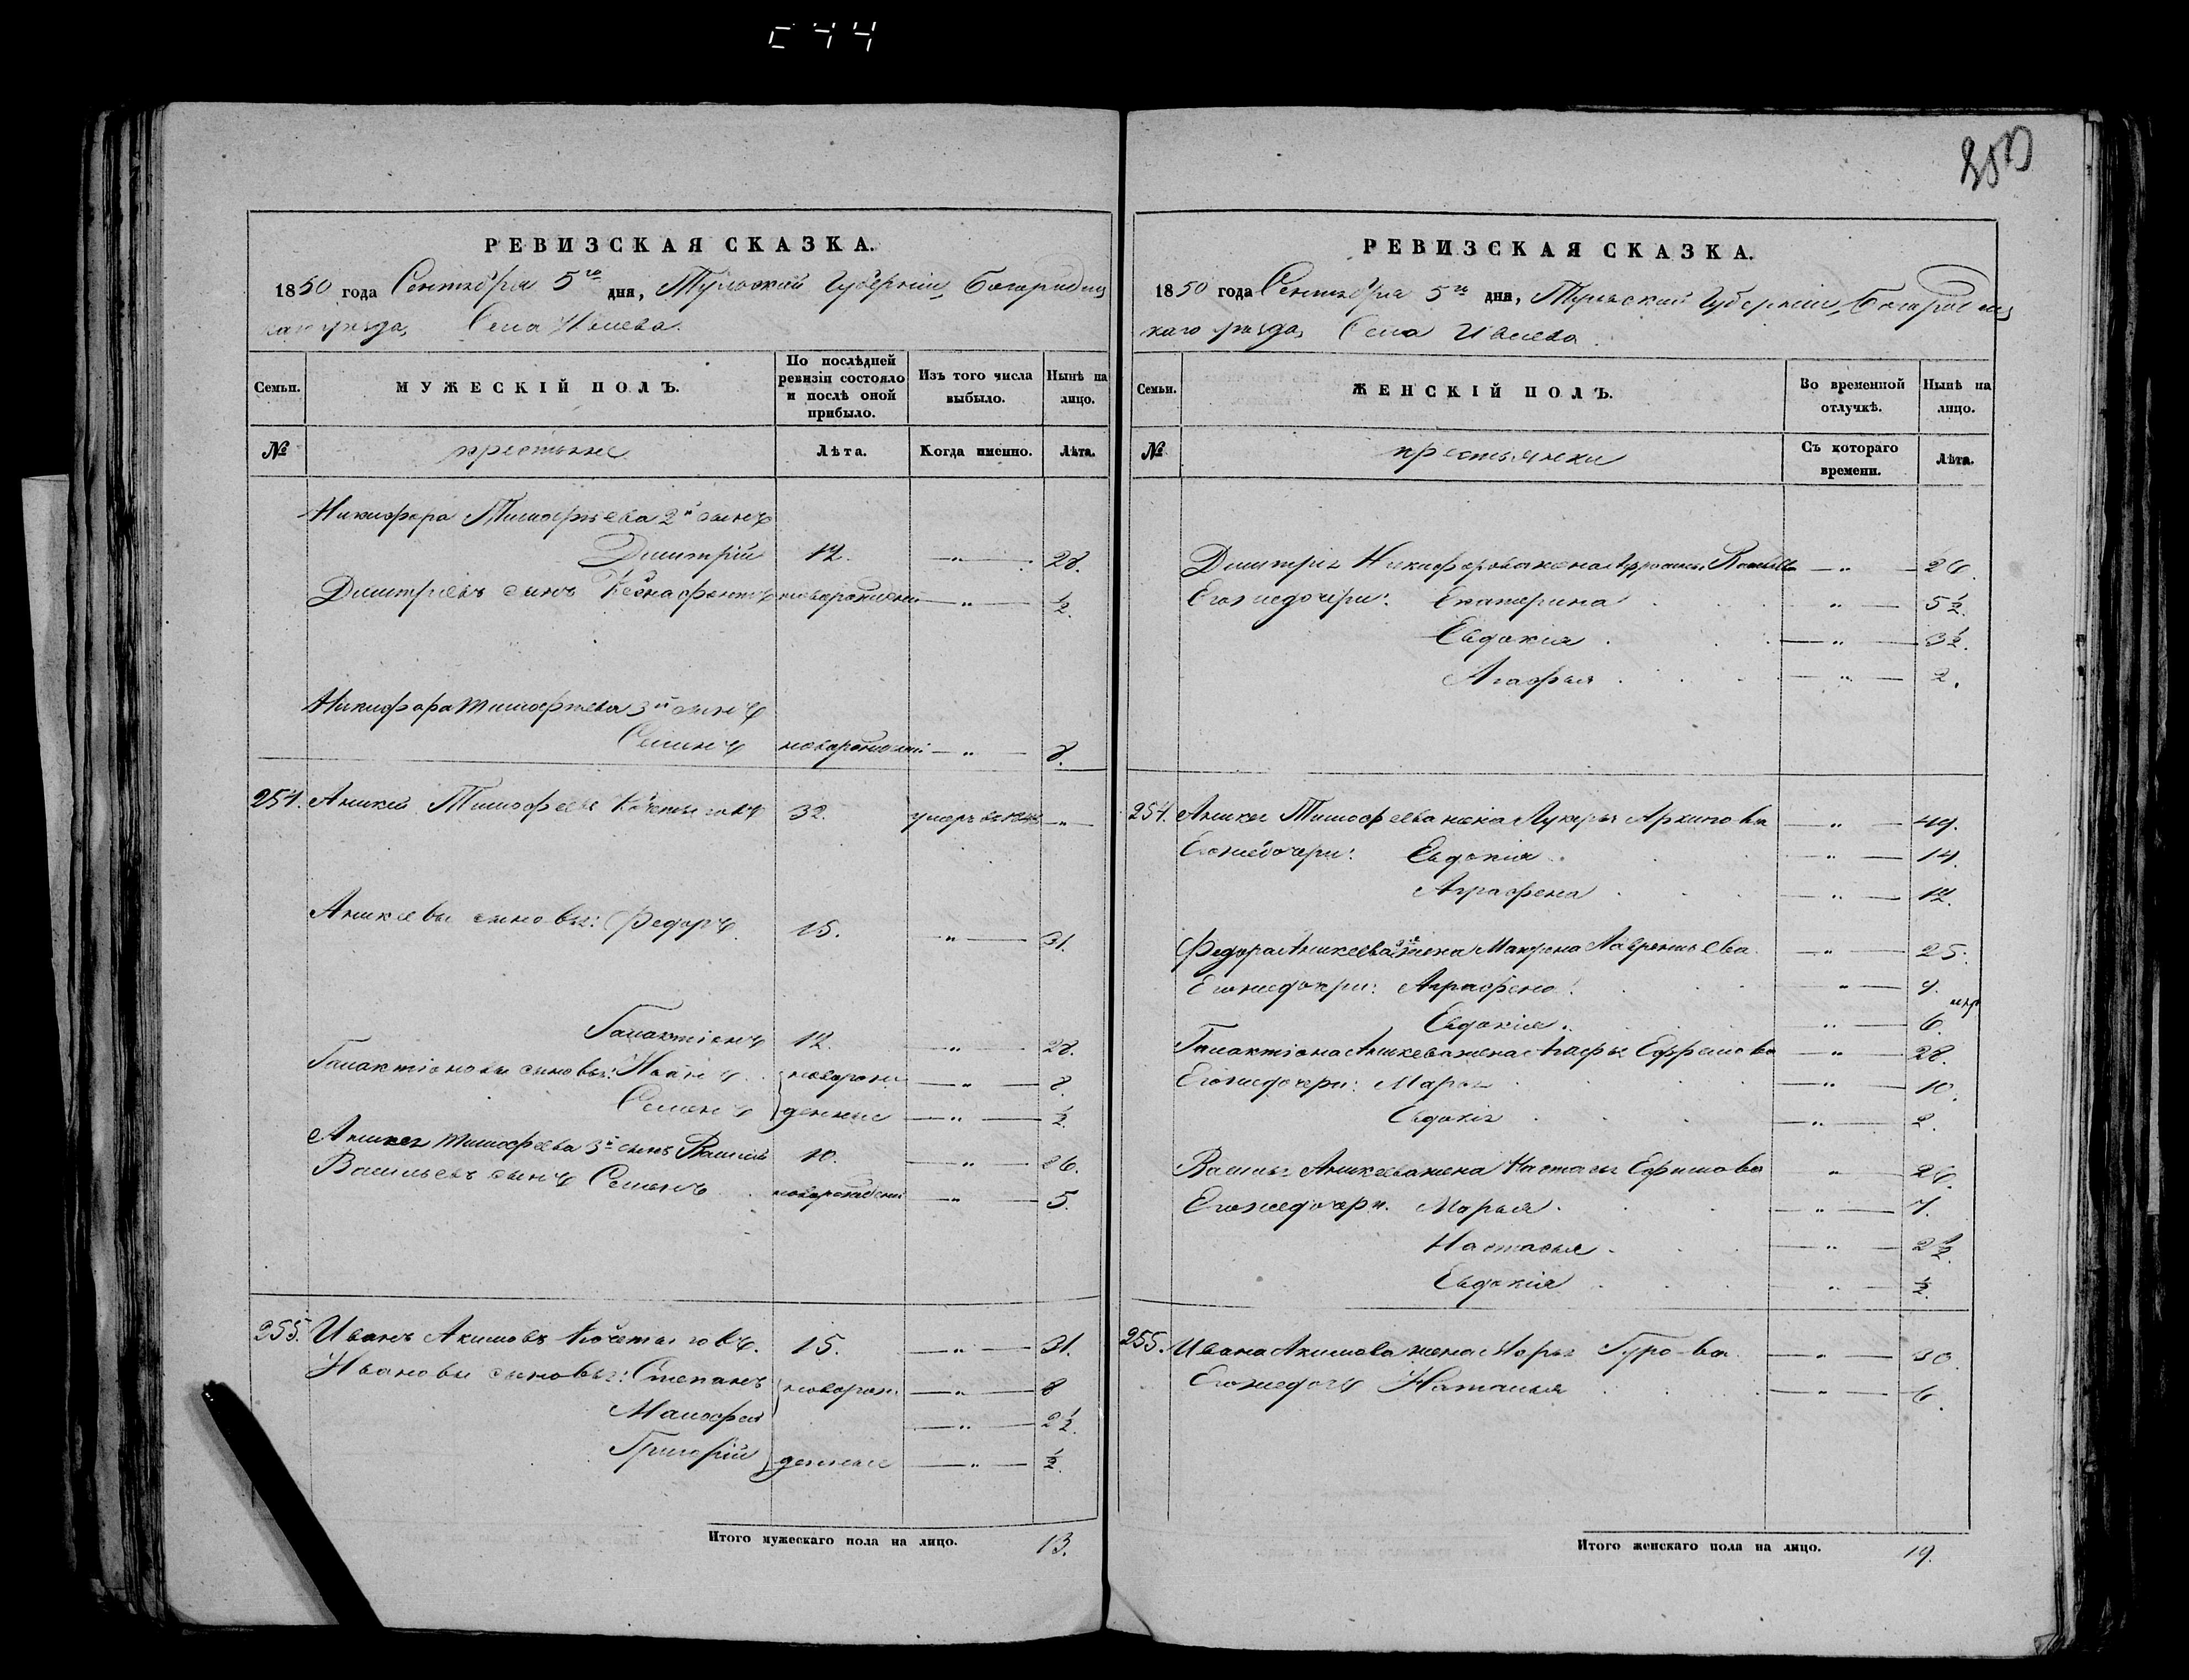 С44
350
РЕВИЗСКАЯ СКАЗКА.
1850 года Сентября 5го дня, Тульской Губерніи, Богородиц
каго уѣзда, Села Ивлева.
Семьи.
МУЖЕСКІЙ ПОЛЪ.
По послѣдней ревизіи состояло и послѣ оной прибыло.
Изъ того числа выбыло.
Нынѣ на лицо.
№
крестьяне
Лѣта.
Когда именно.
Лѣта.
Никифора Тимофѣева 2й сынъ
Дмитрій 12. — „ — 28.
Дмитріевъ сынъ Ксенофонтъ новорожденный — „ — ½.
Никифора Тимофѣева 3й сынъ
Семенъ новорожденный — „ — 8.
254. Аникей Тимофѣевъ Кочетыговъ 32. умеръ въ „
Аникеевы сыновья: Федоръ 15. — „ — 31.
Галактіонъ 12. — „ — 28.
Галактіоновы сыновья: Иванъ новорож — „ — 8.
Семенъ денные — „ — ½.
Аникея Тимофѣева 3й сынъ Василій 10. — „ — 26.
Васильевъ сынъ Семенъ новорожденный — „ — 5.
255. Иванъ Акимовъ Кочетыговъ. 15. — „ — 31.
Ивановы сыновья: Степанъ новорож — „ — 8
— „ — 2½.
Григорій денные — „ — ½.
Итого мужескаго пола на лицо. 13.
РЕВИЗСКАЯ СКАЗКА.
1850 года Сентября 5го дня, Тульской Губерніи, Богородиц
каго уѣзда, Села Ивлева.
Семьи.
ЖЕНСКІЙ ПОЛЪ.
Во временной отлучкѣ.
Нынѣ на лицо.
№
крестьянки
Съ котораго времени.
Лѣта.
Дмитрія Никифорова жена — „ — 26.
Его же дочери: Екатерина „ — 5½.
Евдокия — „ — 3½.
Агафья — „ — 2.
254. Аникея Тимофѣева жена Лукерья Архипова — „ — 49.
Его же дочери: Евдокія — „ — 14.
Аграфена — „ — 12.
Федора Аникеева жена Макрина Лаврентьева — „ — 25.
Его же дочери: Аграфена „ — 4.
Евдокія „ — 6.
Галактіона Аникеева жена Агафья Ефремова — „ — 28.
Его же дочери: Марья — „ — 10.
Евдокія — „ — 2.
Василья Аникеева жена Настасья Ефимова „ — 26.
Его же дочери. Марья — „ — 7.
Настасья — „ — 2½.
Евдокія — „ — ½.
255. Ивана Акимова жена Марья Гурова — „ — 30.
Его же дочь Наталья — „ — 6.
Итого женскаго пола на лицо. 19.